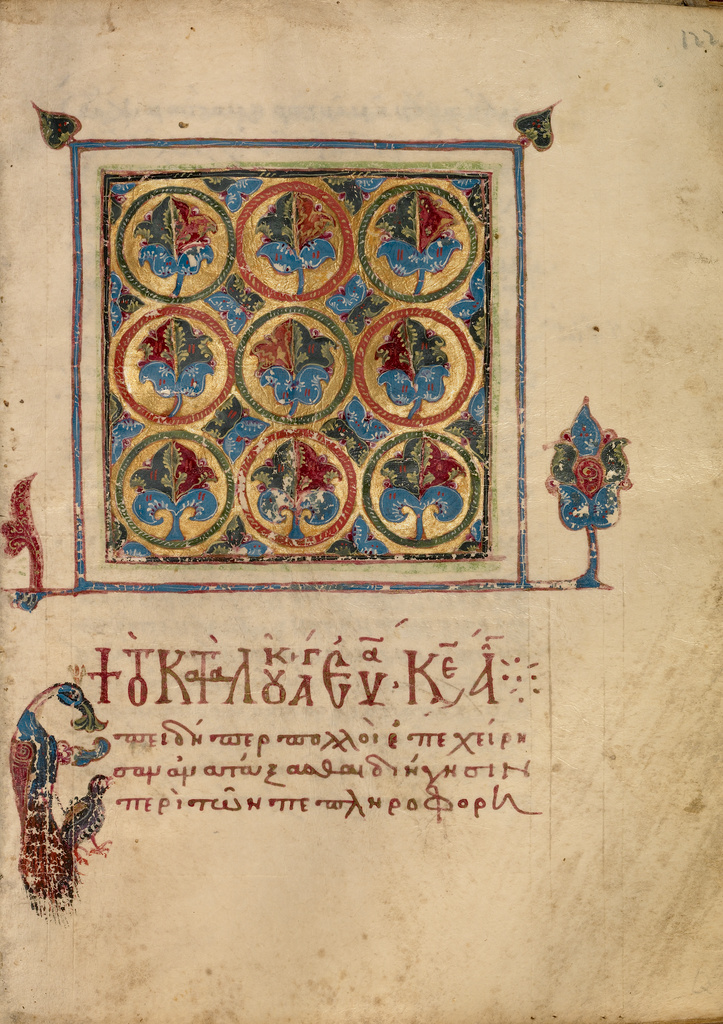 122
+ τὸ κατὰ λουκ· ἅγ εὐα · κε α
Ἐπειδήπερ πολλοὶ ἐπεχείρη
σαν ἀνατάξασθαι διήγησιν
περὶ τῶν πεπληροφορη